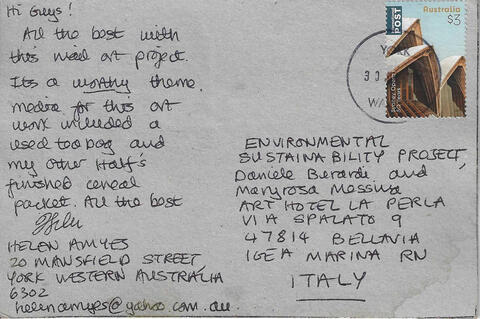 Hi Guys!
All the best with
this mail art project.
Its a worthy theme.
media for this art
work included a
used tea bag and
my other Half's
finished cereal
packet. All the best
HELEN AMYES
20 MANSFIELD STREET,
YORK WESTERN AUSTRALIA
6302
helenamyes@yahoo.com.au.
POST
Australia
$3
YORK
30
WA
ENVIRONMENTAL
SUSTAINABILITY PROJECT,
Daniele Berardi and
Maryrosa Massina
ART HOTEL LA PERLA
VIA SPALATO 9
47814 BELLAVIA
IGEA MARINA RN
ITALY